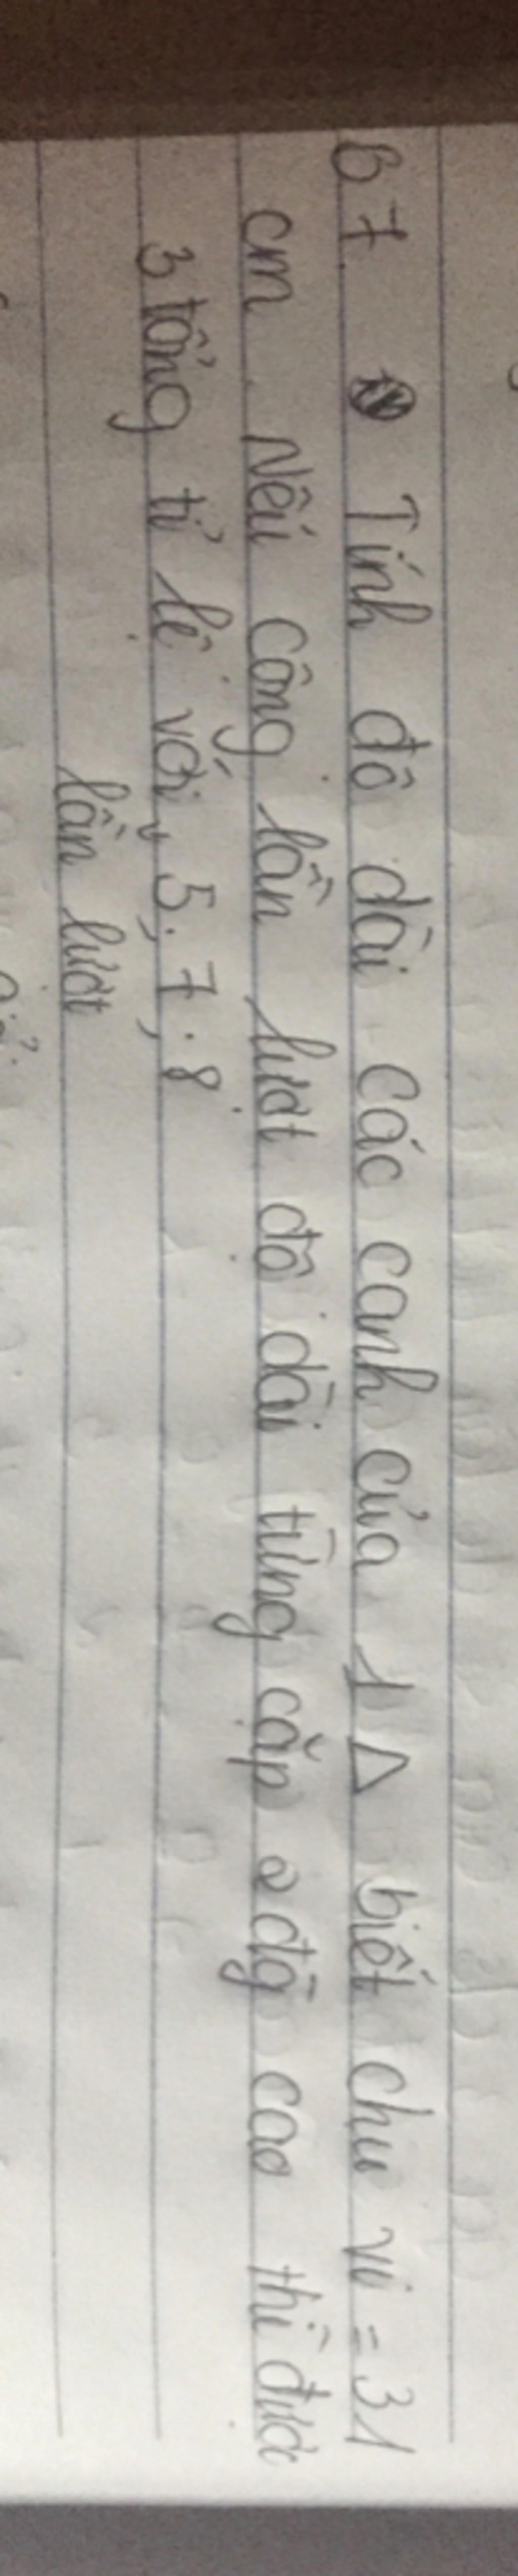 b7 Tính độ dài các cạnh của 1 Δ biết chu vi = 31
cm Nếu cộng lần lượt độ dài từng cặp 2 đg cao thì được
3 tổng tỉ lệ với 5, 7, 8
lần lượt